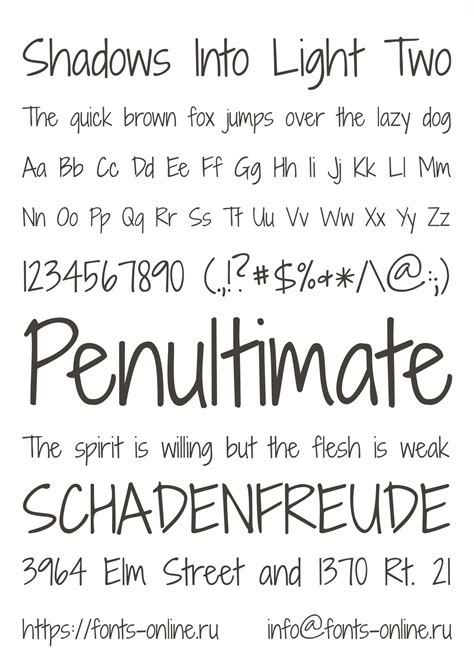 Shadows Into Light Two
The quick brown fox jumps over the lazy dog
Aa Bb Cc Dd Ee Ff Gg Hh Ii Jj Kk Ll Mm
Nn Oo Pp Qq Rr Ss Tt Uu Vv Ww Xx Yy Zz
1234567890 (.,!?#$%&*/\@:;)
Penultimate
The spirit is willing but the flesh is weak
SCHADENFREUDE
3964 Elm Street and 1370 Rt. 21
https://fonts-online.ru info@fonts-online.ru